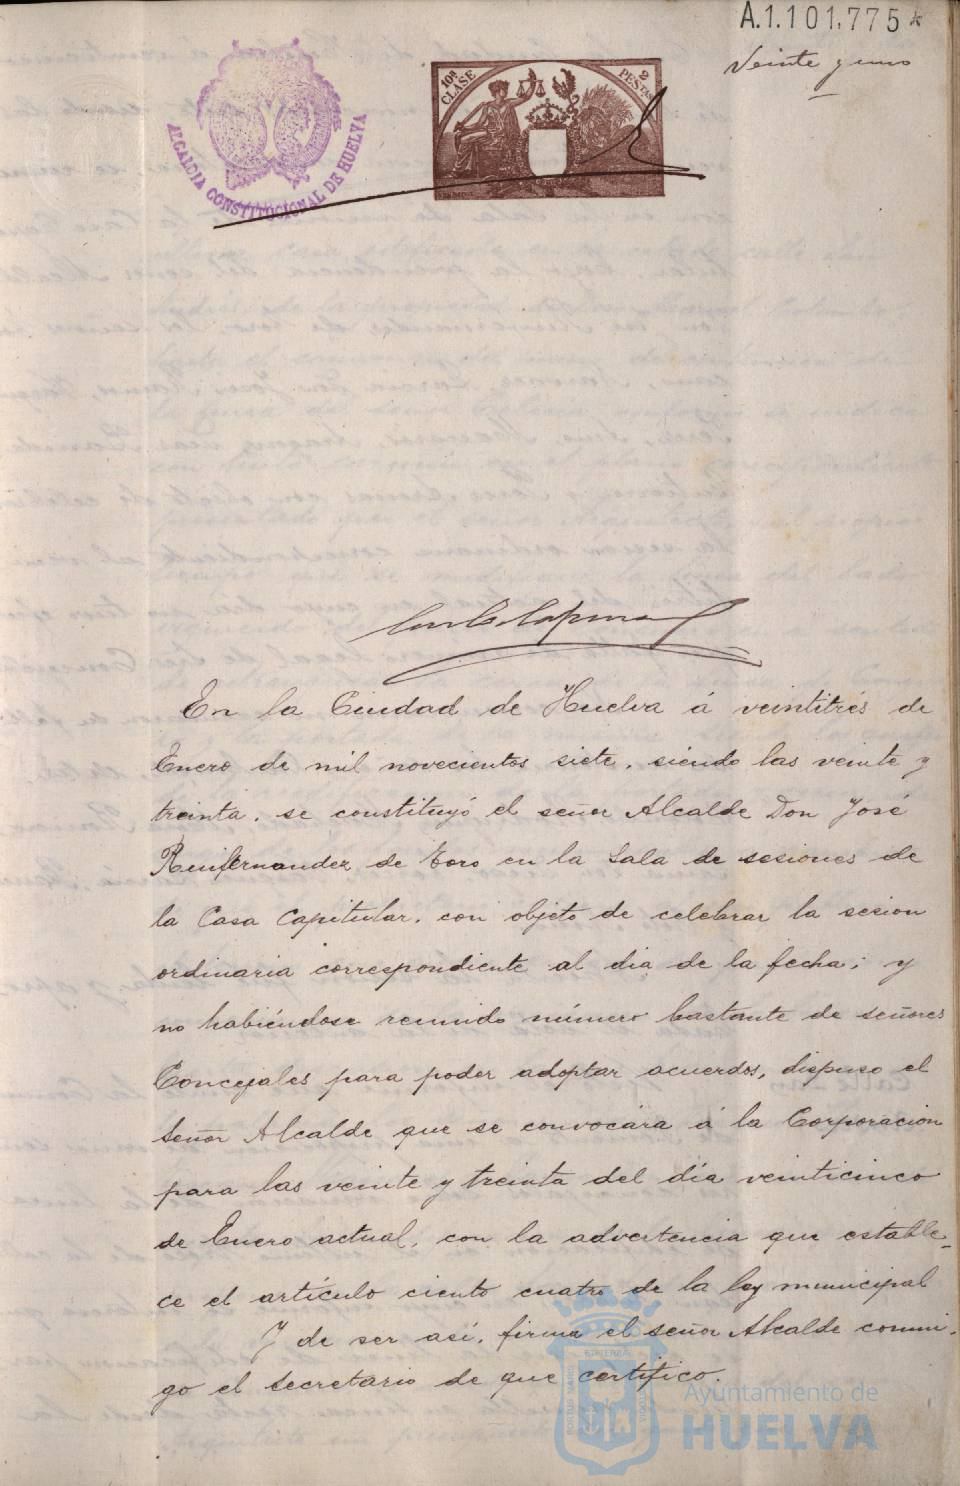 A.1.101.775*
Veinte y uno
ALCALDIA CONSTITUCIONAL DE HUELVA
10ª CLASE
2 PESETAS
En la Ciudad de Huelva á veintitrés de
Enero de mil novecientos siete, siendo las veinte y
treinta, se constituyó el señor Alcalde Don José
de Toro en la Sala de sesiones de
la Casa Capitular, con objeto de celebrar la sesion
ordinaria correspondiente al dia de la fecha; y
no habiéndose reunido número bastante de señores
Concejales para poder adoptar acuerdos, dispuso el
señor Alcalde que se convocára á la Corporacion
para las veinte y treinta del día veinticinco
de Enero actual, con la advertencia que estable-
ce el artículo ciento cuatro de la ley municipal
Y de ser así, firma el señor Alcalde conmi-
go el secretario de que certifico.
Ayuntamiento de
HUELVA